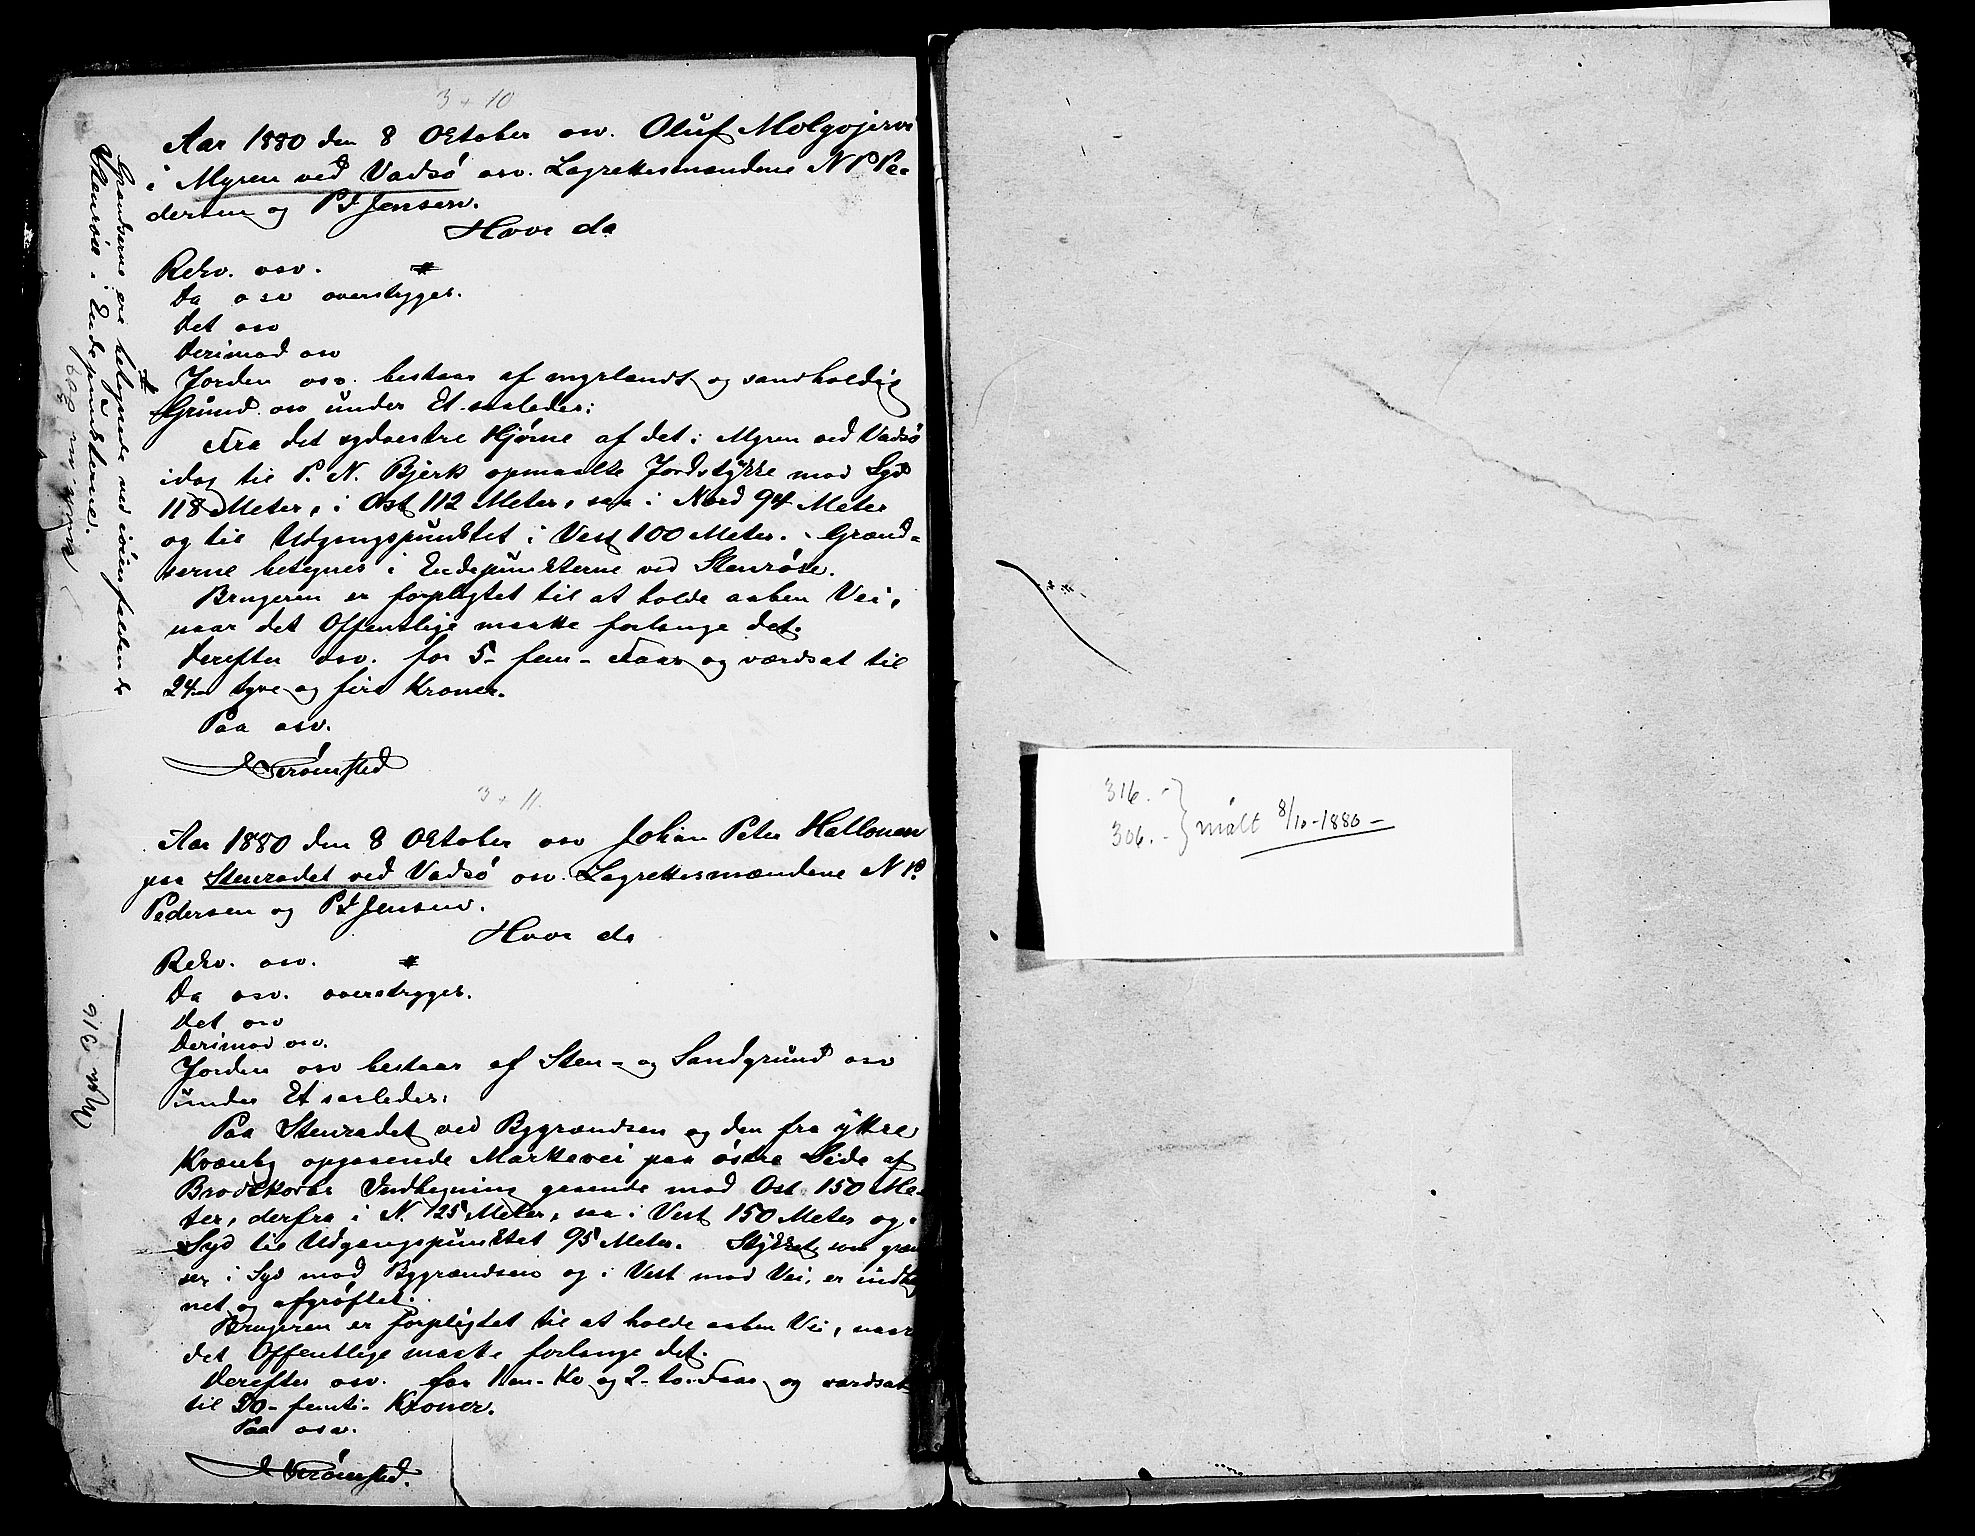 3 + 10
Aar 1880 den 8 October osv. Oluf Molgojervi
i Myren ved Vadsö osv. Lagrettesmændene N P Pe-
dersen og P I Jensen.
Hvor da
Rekv. osv. #
Da osv overstryges.
Det osv
Derimod osv
Jorden osv. bestaar af myrlændt og sandholdig
Grund osv under Et saaledes:
Fra det sydvestre Hjørne af det i Myren ved Vadsö
idag til P. N. Bjerk opmaalte Jordstykke mod Syd
118 Meter, i Öst 112 Meter, saa i Nord 94 Meter
og til Udgangspunktet i Vest 100 Meter. Grænd-
serne betegnes i Endepunkterne ved Stenröse.
Brugeren er forpligtet til at holde aaben Vei,
naar det Offentlige maatte forlange det.
Derefter osv. for 5 - fem - Faar og værdsat til
24 - tyve og fire Kroner.
Paa osv.
Strömsted
# Grændserne ere betegnede ved iöinefaldende
Stenröse i Endepunkterne.
3 + 11.
Aar 1880 den 8 October osv Johan Peter Hallonen
paa Stenradet ved Vadsö osv. Lagrettesmændene N P.
Pedersen og P I Jensen.
Hvor da
Rekv. osv. #
Da osv. overstryges.
Det osv
Derimod osv.
Jorden osv bestaar af Sten- og Sandgrund osv
under Et saaledes:
Paa Stenradet ved Bygrændsen og den fra yttre
Kvænby opgaaende Markevei paa östre Side af
Brodtkorbs Indhegning gaaende mod Öst 150 Me-
ter, derfra i N. 125 Meter, saa i Vest 150 Meter og i
Syd til Udgangspunktet 95 Meter. Stykket, som græn
ser i Syd mod Bygrændsen og i Vest mod Vei, er indheg
net og afgröftet.
Brugeren er forpligtet til at holde aaben Vei, naar
det Offentlige maatte forlange det.
Derefter osv. for 1 en - Ko og 2 - to - Faar og værdsat
til 50 - femti - Kroner.
Paa osv.
Strömsted.
316
316. -
306. - } målt 8/10-1880 -